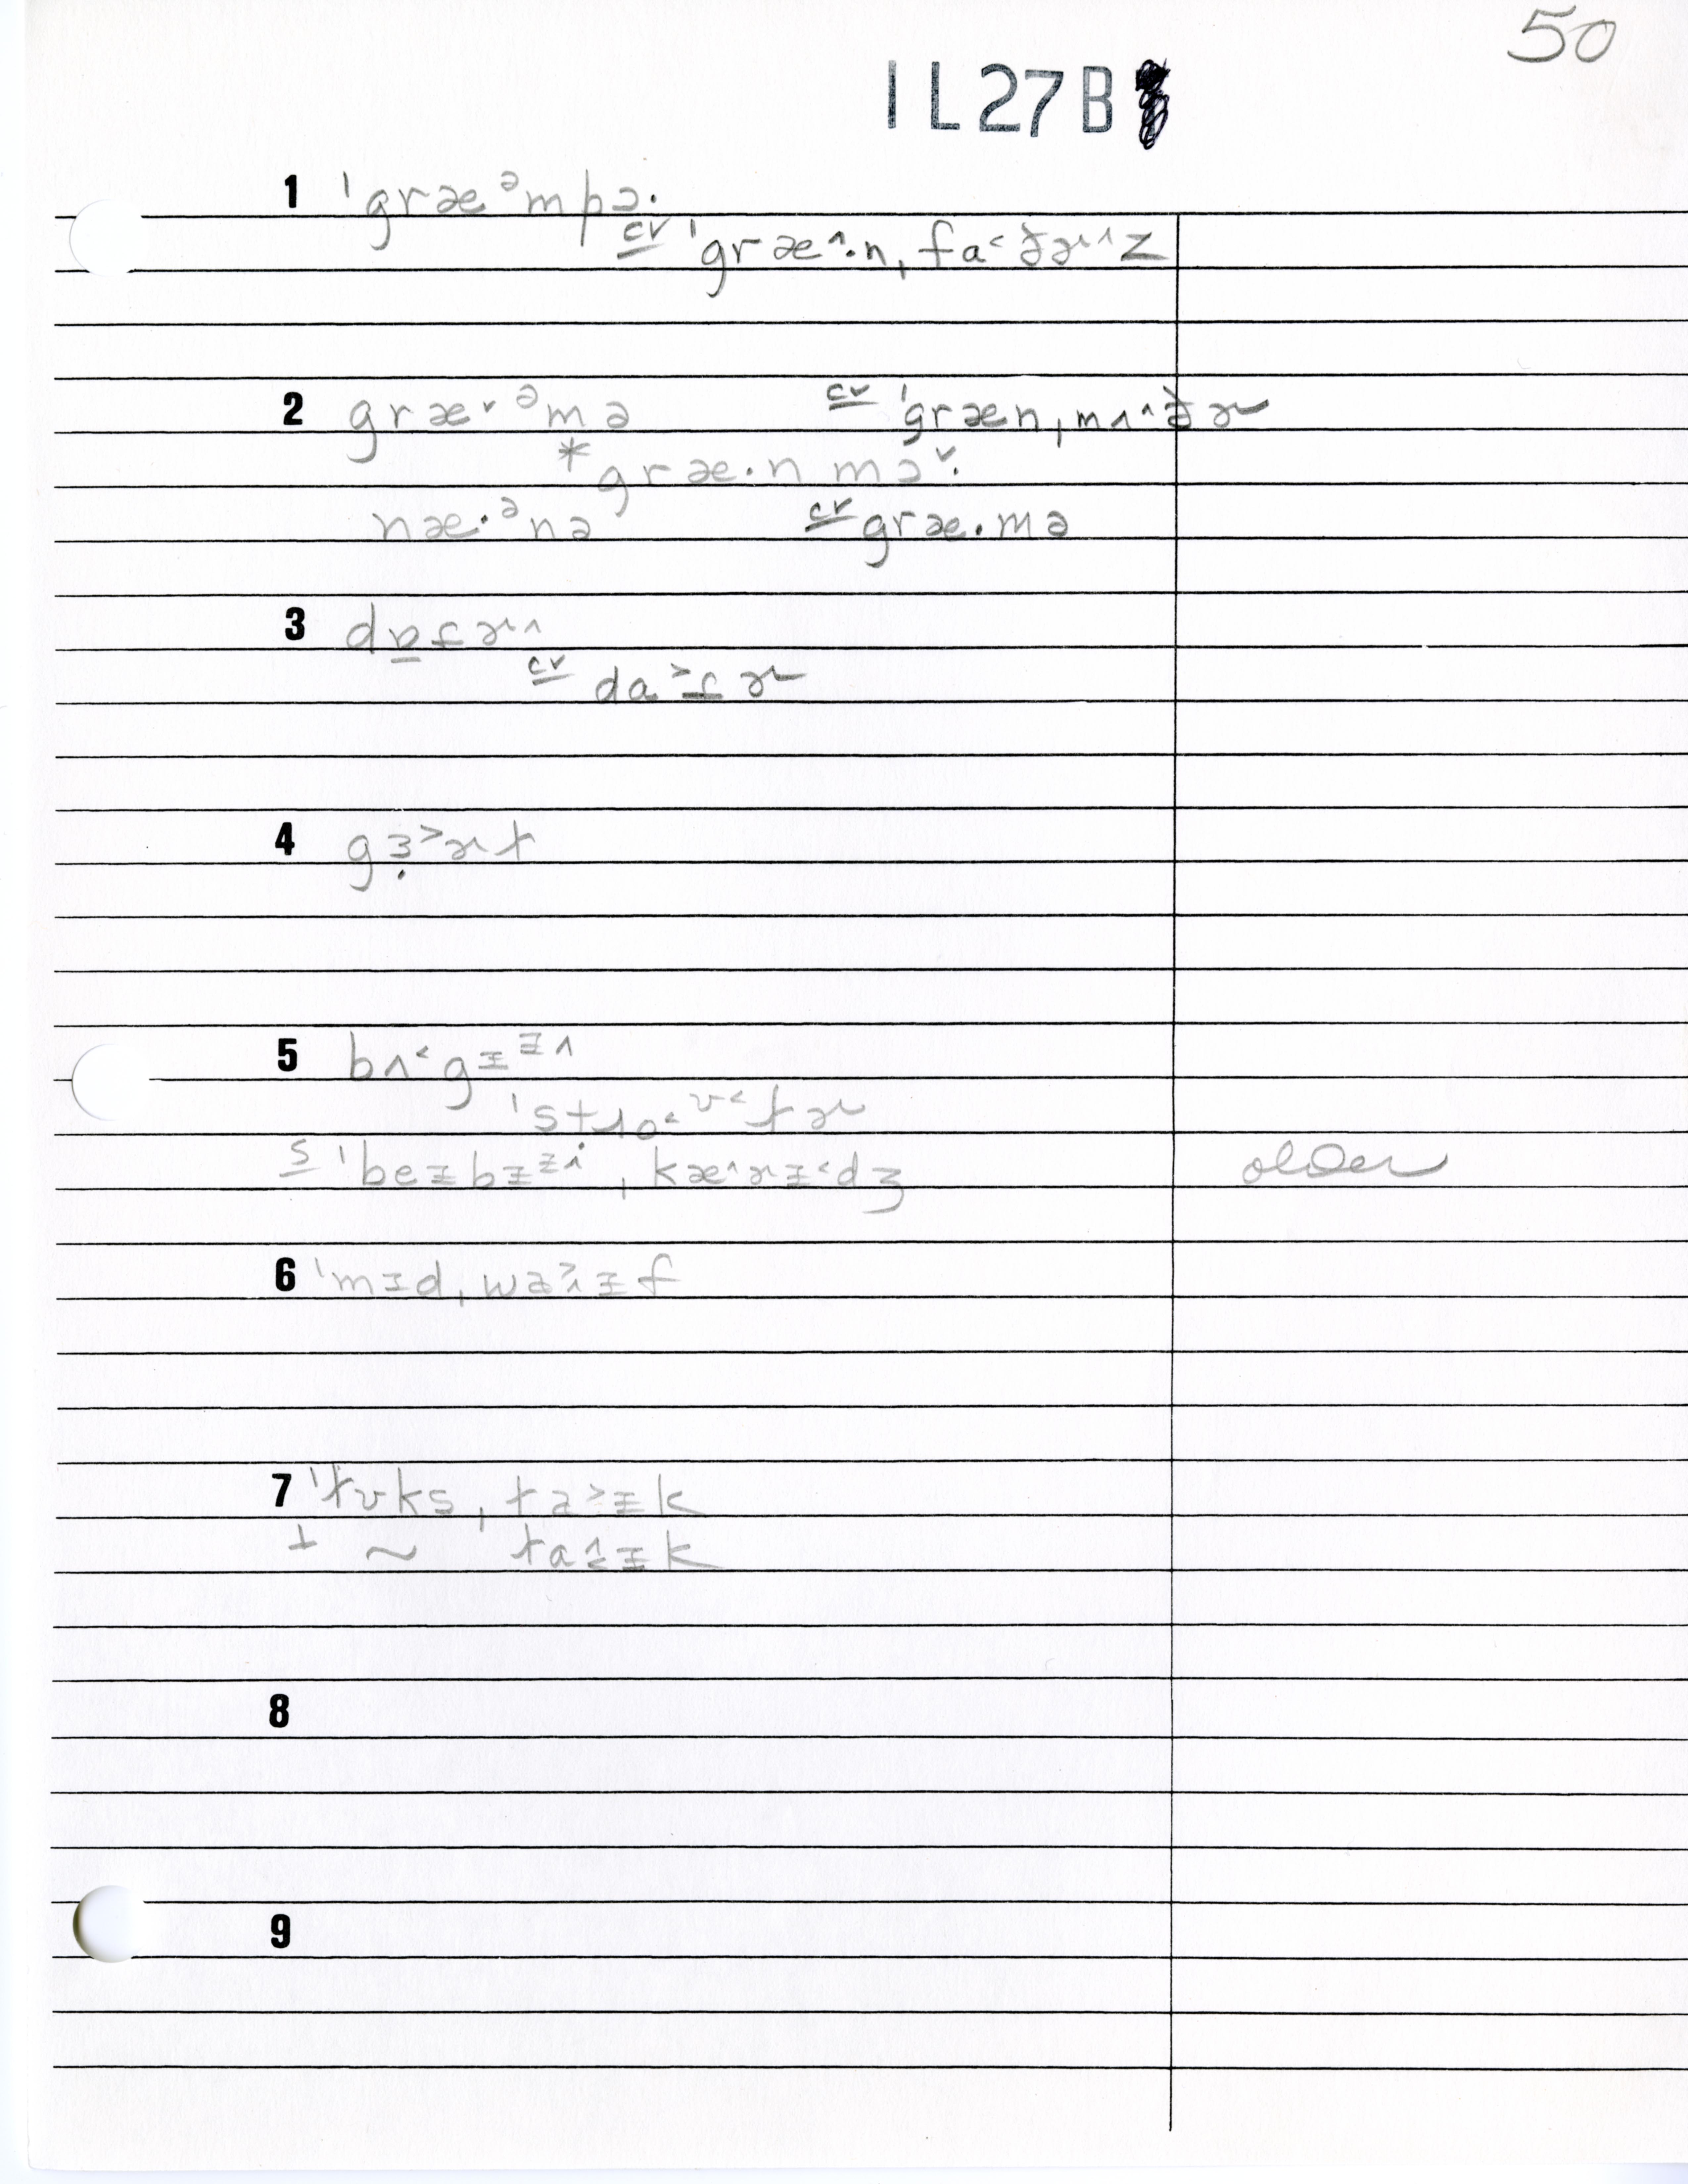 50
1L27B
1 ˈgræᵊmpɔ·
cv ˈgræ^·n,fa˂ðɚ^z
2 græ˅ᵊmə cv ˈgræn,mʌ^ðɚ
*græ·n mɔ˅·
næ·ᵊnə cv græ·mə
3 dɒfɚ^
cv da˃fɚ
4 gɜ̣˃ɚt
5 bʌ˂gɪᶻ^
ˈstro˂ʊ˂tɚ
s ˈbeɪbɪi^,kæ^ɚɪ˂dʒ older
6 ˈmɪd,wa˃ɪf
7 ˈtʊks,ta˃ɪk
⊥ ~ ta^˂ɪk
8
9